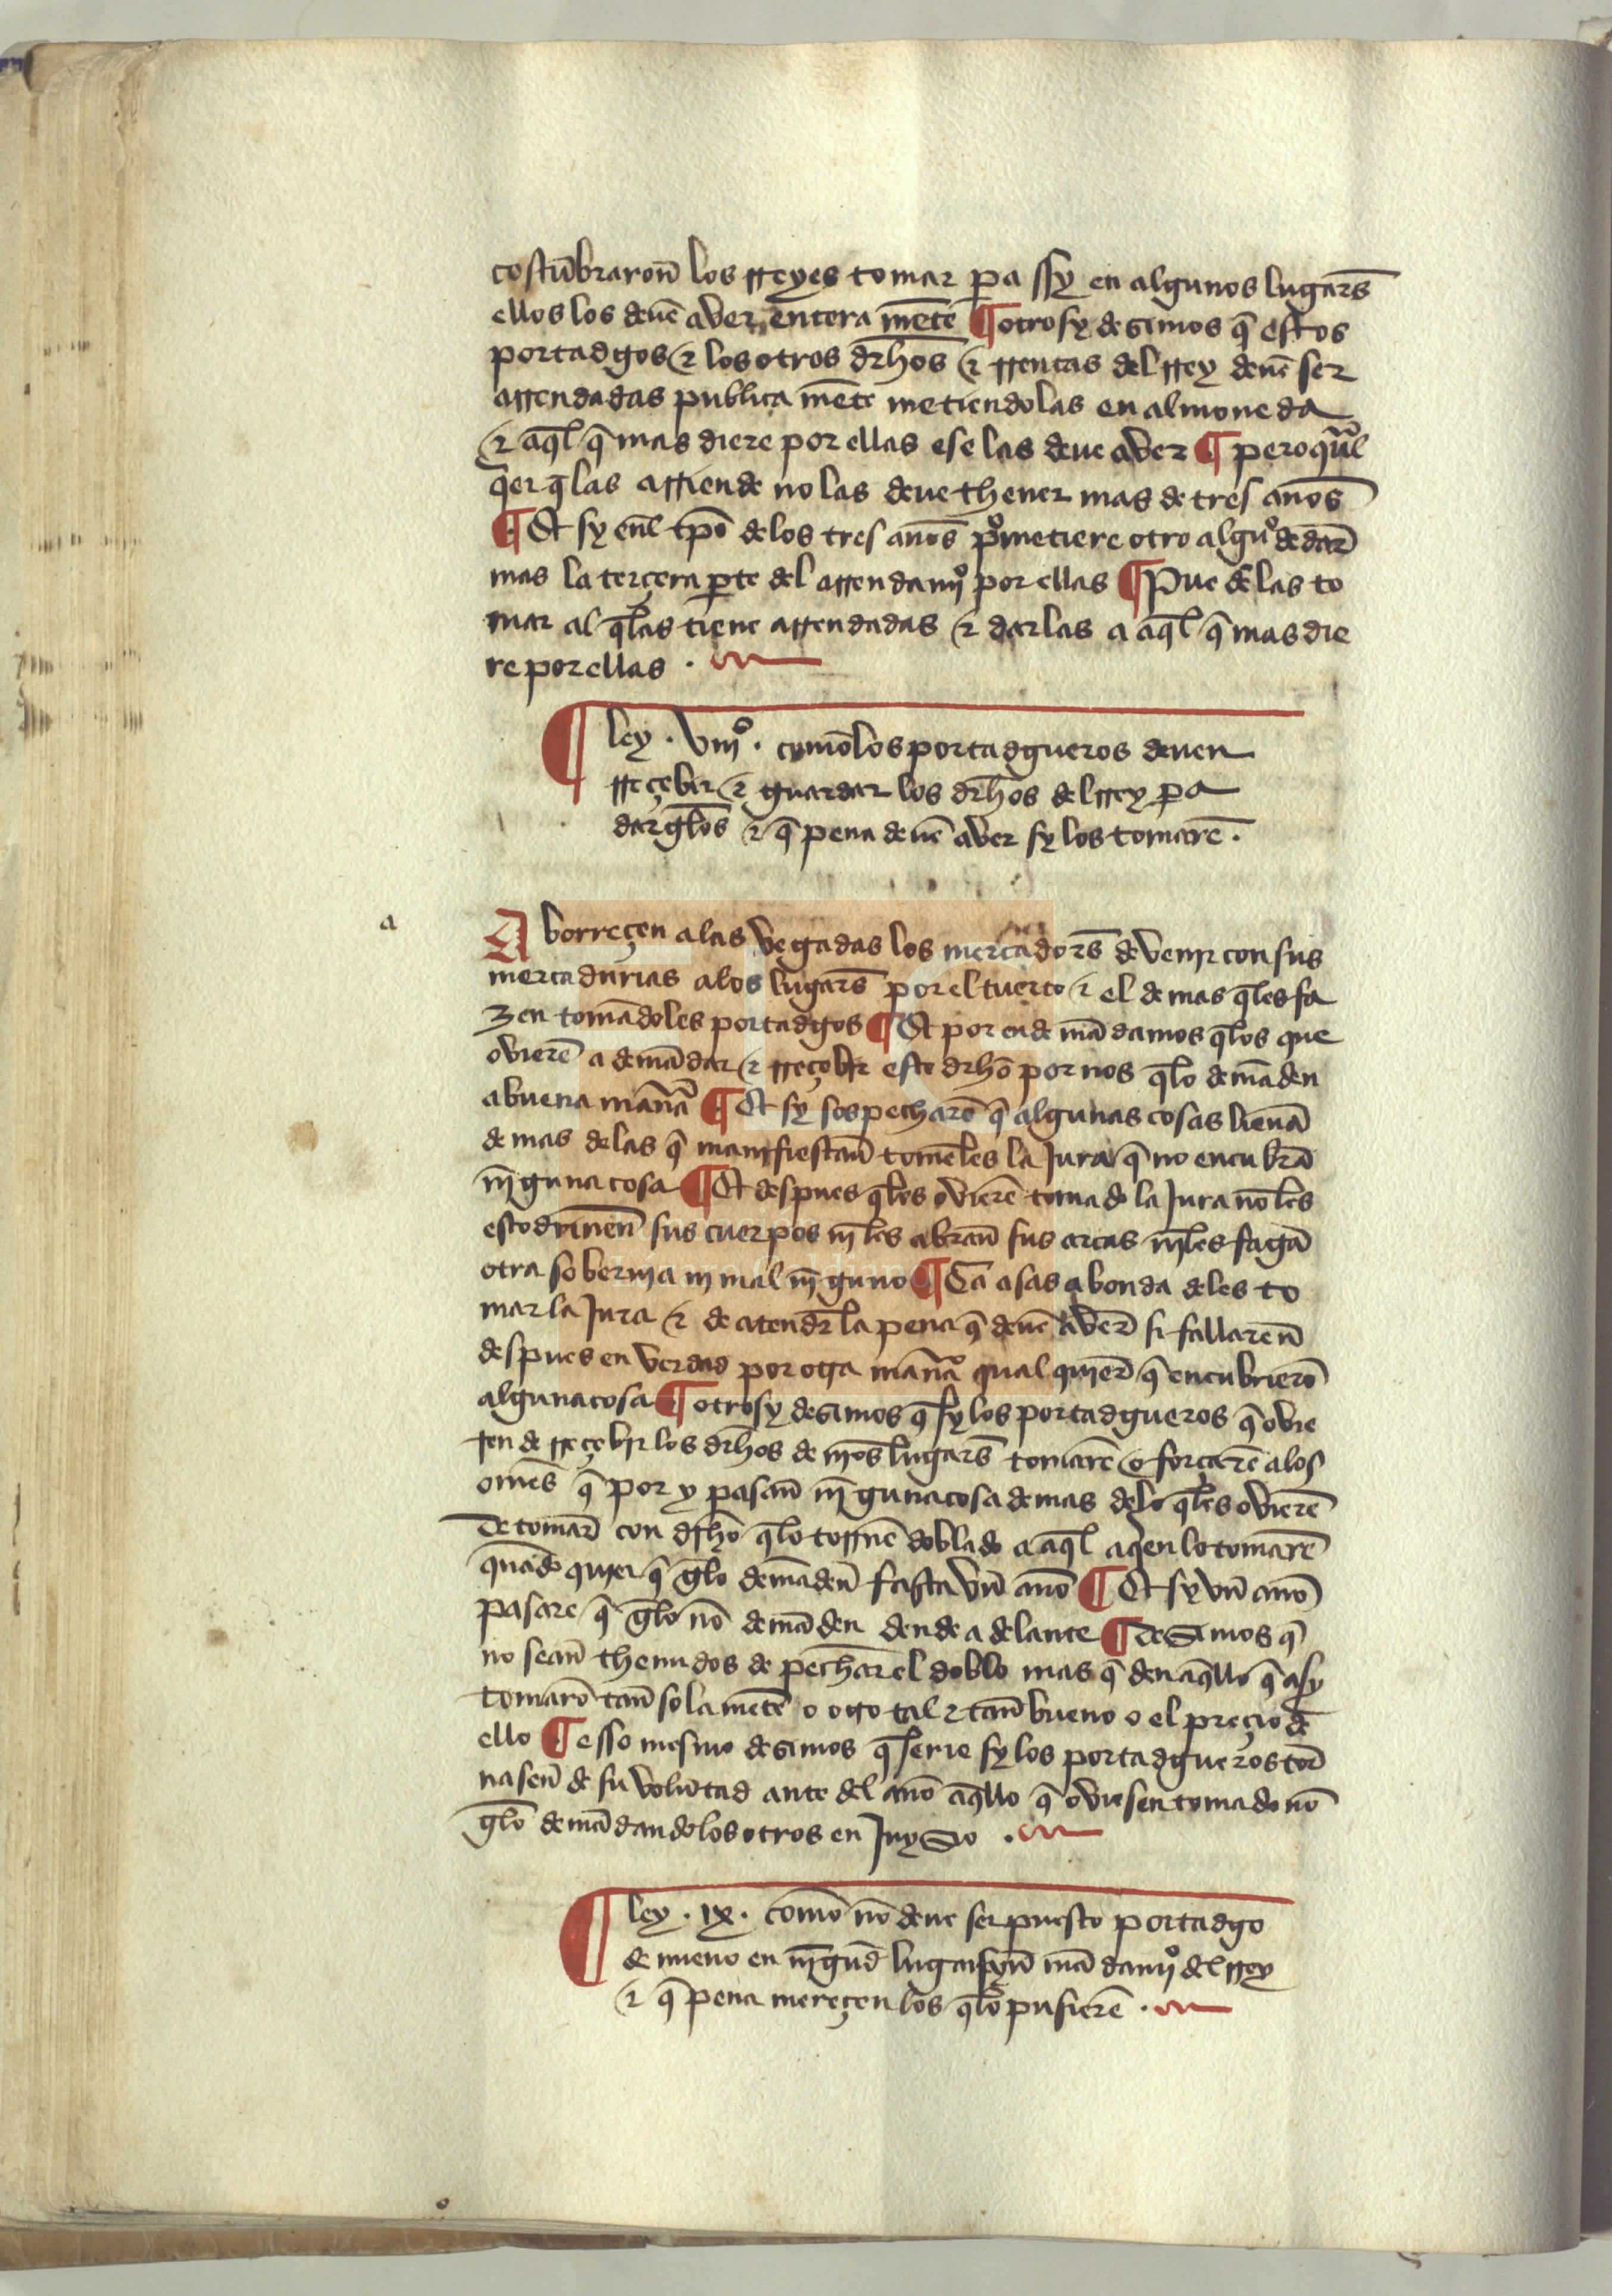 costũbraron̄ los rreyes tomar pa ssy en algunos lugars̄
ellos los deuẽ aver entera mẽte ¶ otrosy desimos q̃ estos
portadgos ⁊ los otros drhōs ⁊ rrentas del rrey deuẽ ser
arrendadas publica mẽte metiendolas en almoneda
⁊ aql̃ q̃ mas diere por ellas ese las deue aver ¶ pero qual
q̃er q̃ las arriende no las deue thener mas de tres anõs
¶ Et sy enl̃ tpõ de los tres anõs pometiere otro alguº de dar̄
mas la terçera pte del arrendamjº por ellas ¶ Puede las to
mar al q̃ las tiene arrendadas ⁊ darlas a aql̃ q̃ mas die
re por ellas .
¶ ley . viijº . comō los portadgueros deuen
rreçebir ⁊ guardar los drhõs del rrey pa
dar gelos ⁊ q̃ pena deuẽ aver sy los tomarẽ .
a
Aborreçen a las vegadas los mercadors̄ de venjr con sus
mercadurias a los lugars̄ por el tuerto ⁊ el demas q̃ les fa
zen tomãdoles portadgos ¶ Et por ende mãdamos q̃ los que
ovierẽ a demãdar ⁊ rreçebir este drhõ por nos q̃ lo demãden
a buena manã ¶ Et sy sospecharẽ q̃ algunas cosas lieuã
de mas de las q̃ manjfiestan̄ tomẽles la Jura q̃ no encubrã
nj̃guna cosa ¶ Et despues q̃ les ovierẽ tomado la Jura nõ les
escodrinen̄ sus cuerpos nj̃ les abran̄ sus arcas nj̃ les fagã
otra soberuja nj mal nj̃guno ¶ Ca asas abonda de les to
mar la Jura ⁊ de atendr̃ la pena q̃ deuẽ aver̄ si fallaren̄
despues en verdad por otra manã qual qujer̄ q̃ encubrierõ
alguna cosa ¶ otrosy desimos q̃ sy los portadgueros q̃ ovie
ren de rreçebjr los drhõs de nr̃os lugars̄ tomarẽ o forçarẽ a los
omẽs q̃ por y pasan̄ nj̃guna cosa demas de lo q̃ les ovierẽ
de tomar̄ con drhõ q̃ lo tornẽ doblado a aql̃ a qen lo tomarẽ
quãdo qujer q̃ gelo demãden̄ fasta vn̄ anõ ¶ Et sy vn̄ anõ
pasare q̃ gelo nõ demãden dende adelante ¶ desimos q̃
no sean̄ thenudos de pechar el doblo mas q̃ den aq̃llo q̃ asy
tomarõ tan̄ sola mẽte o otro tal ⁊ tan̄ bueno o el preçio de
ello ¶ esso mesmo desimos q̃ serie sy los portadgueros tor̄
nasen̄ de su volũtad ante del anõ aq̃llo q̃ oviesen tomado nõ
gelo demãdandolos otros en Juyzio .
¶ ley . ix . comō nõ deue ser puesto portadgo
de nueuo en nj̃gud̄ lugar syn̄ mãdamjº del rrey
⁊ q̃ pena mereçen los q̃ lo pusierẽ .